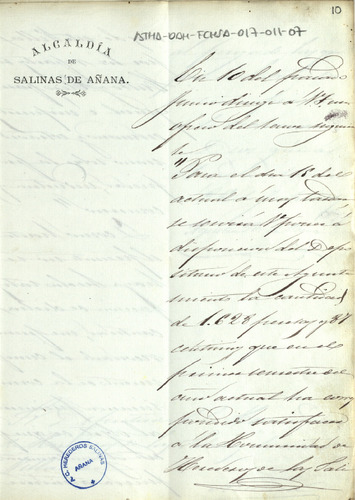 10
ATHA-DAH-FCHSA-017-011-07
ALCALDÍA
DE
SALINAS DE AÑANA.
En 10 del
Junio dirigí a V. un
oficio del tenor siguien
te
"Para el día 15 del
actual a muy tardar
se servirá V. poner a
disposicion del Depo
sitario de este Ayunta
miento la cantidad
de 1.628 pesetas y 87
centimos que en el
primer semestre del
año actual ha corres
pondido satisfacer
a la Comunidad de
Herederos de las Sali
R.C. HEREDEROS SALINAS
AÑANA